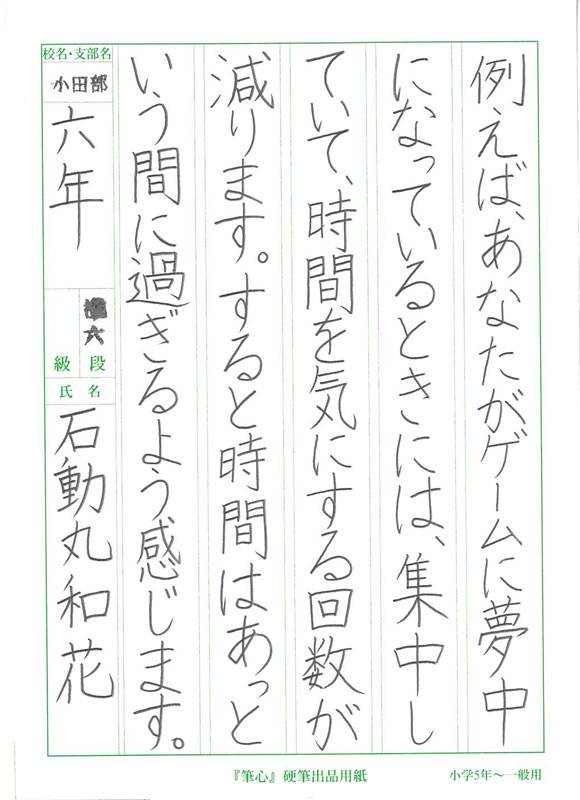 例えば、あなたがゲームに夢中
になっているときには、集中し
ていて、時間を気にする回数が
減ります。すると時間はあっと
いう間に過ぎるよう感じます。
校名・支部名
小田部
六年
準六
段
級
氏名
石動丸和花
『筆心』硬筆出品用紙
小学5年〜一般用